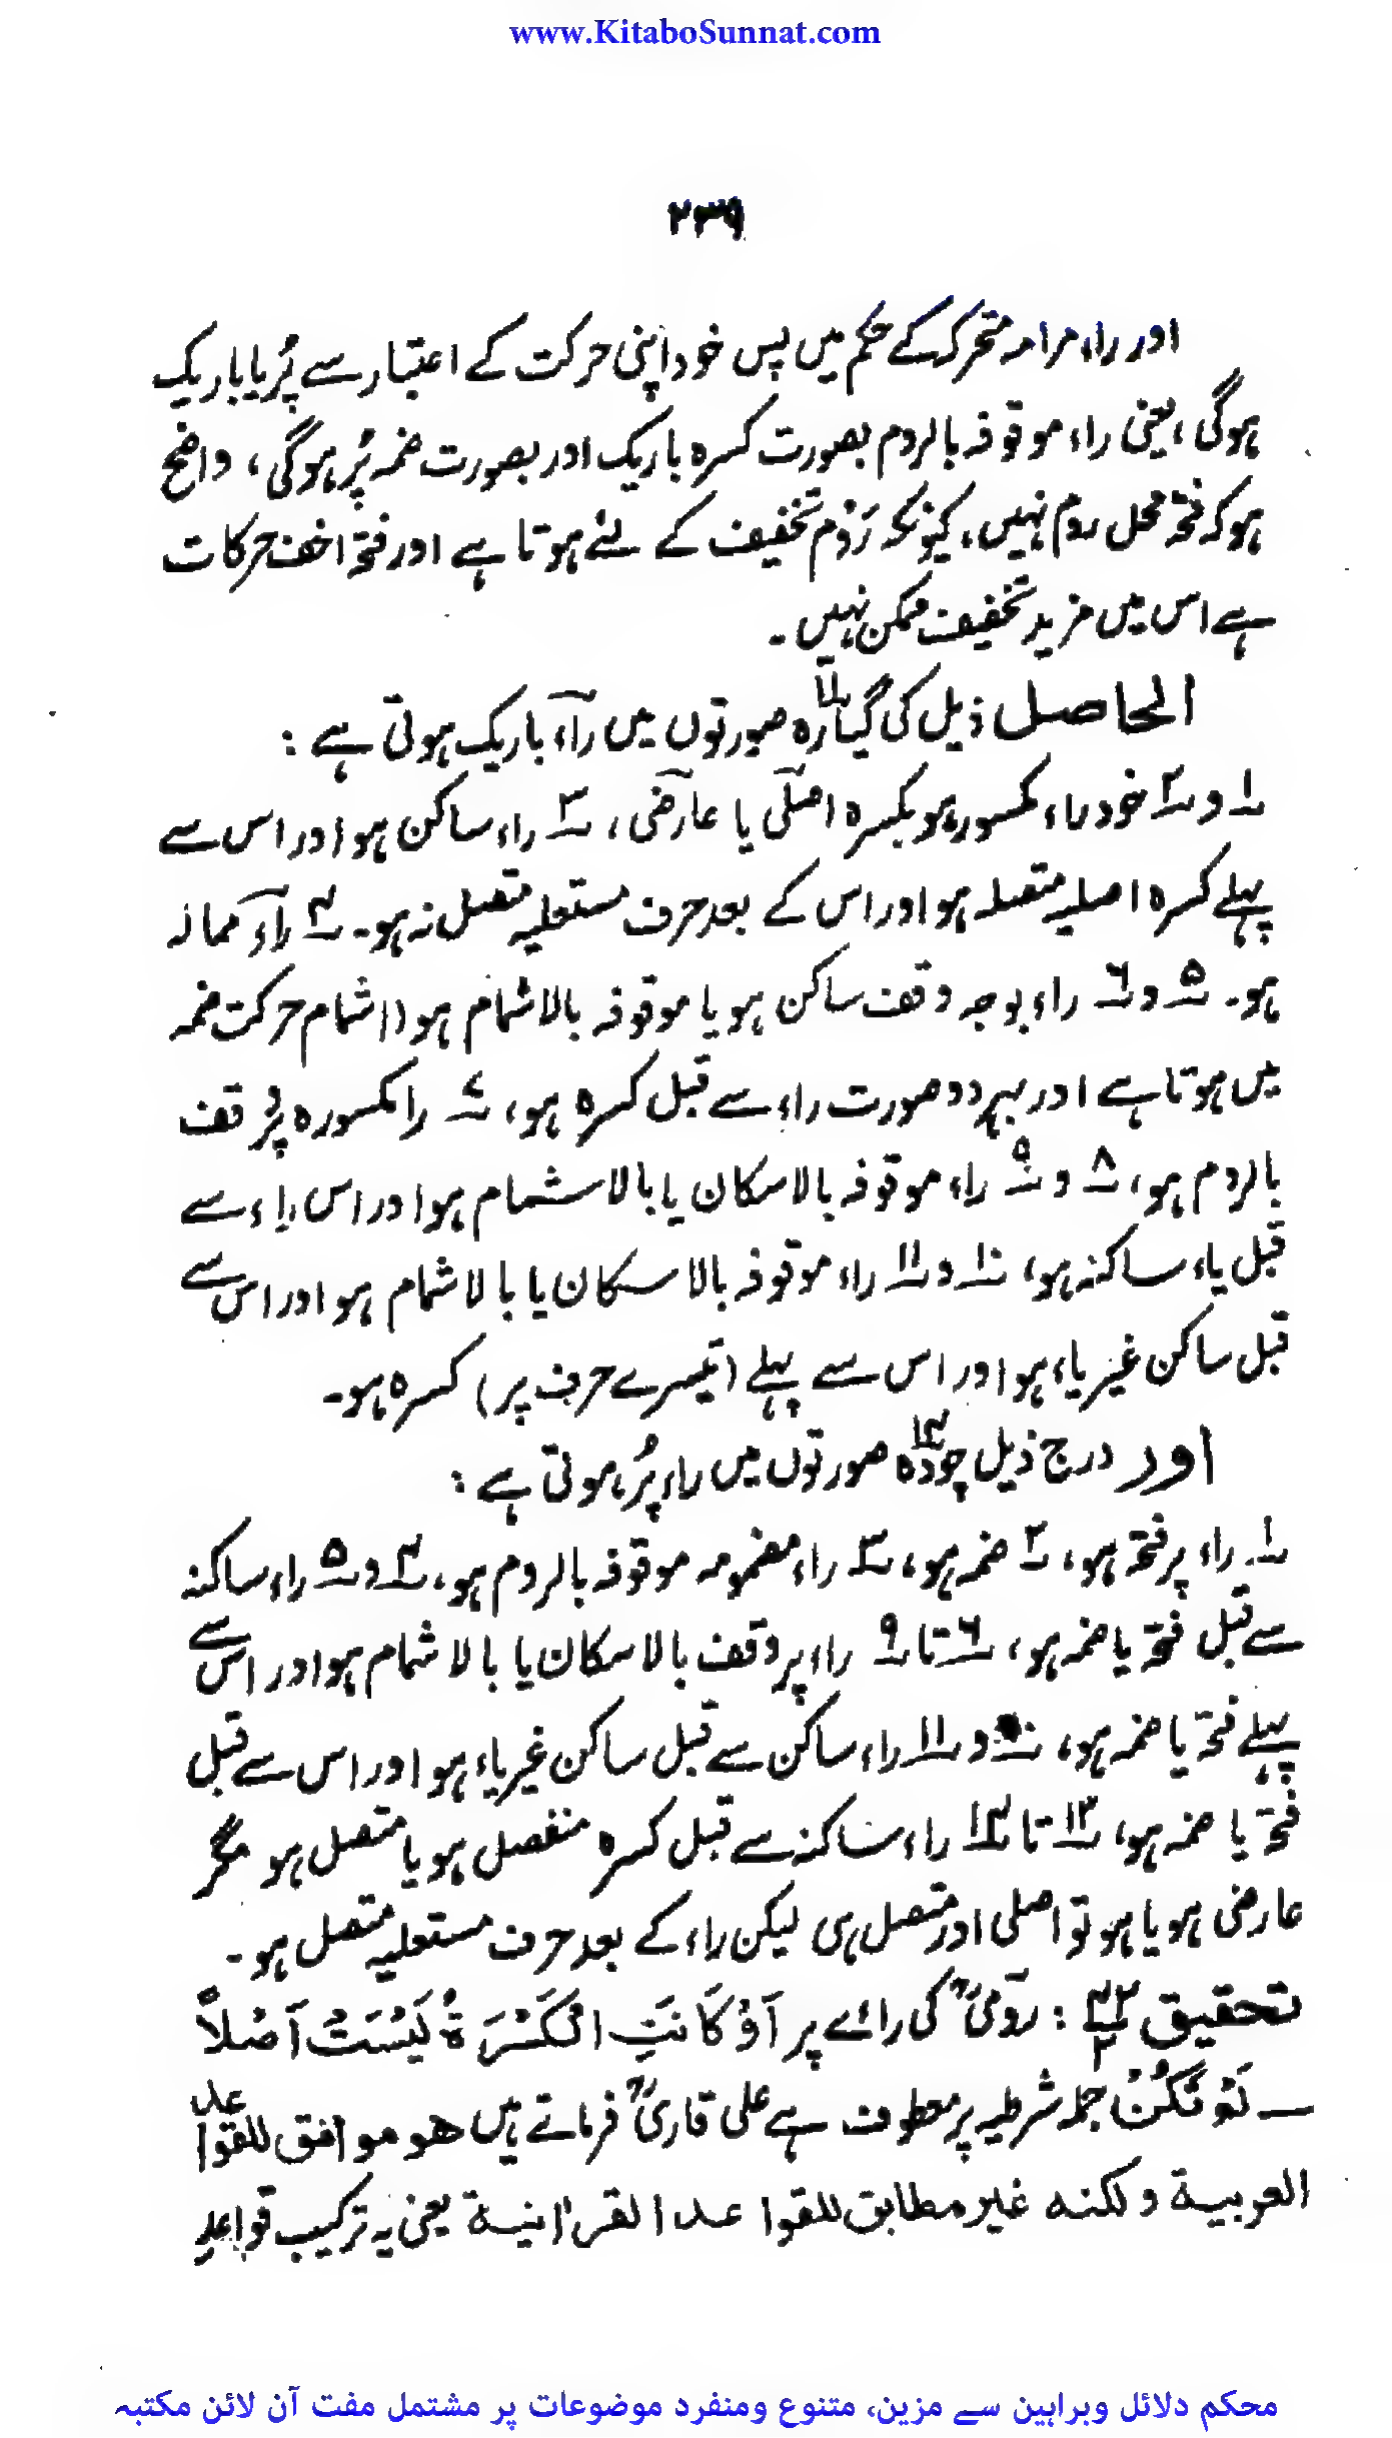 www.KitaboSunnat.com
۲۳۹
اور راء مرامہ متحرک کے حکم میں پس خود اپنی حرکت کے اعتبار سے پُر یا باریک
ہوگی، یعنی راء موقوفہ بالروم بصورت کسرہ باریک اور بصورت ضمہ پُر ہوگی، واضح
ہو کہ فتحہ محل روم نہیں، کیونکہ رَوْم تخفیف کے لئے ہوتا ہے اور فتحہ اخف حرکات
ہے اس میں مزید تخفیف ممکن نہیں۔
الحاصل ذیل کی گیارہ۱۱ صورتوں میں راء باریک ہوتی ہے :
۱ و ۲ خود راء مکسور ہو بکسرہ اصلی یا عارضی، ۳ راء ساکن ہو اور اس سے
پہلے کسرہ اصلیہ متصلہ ہو اور اس کے بعد حرف مستعلیہ متصل نہ ہو۔ ۴ راء ممالہ
ہو۔ ۵ و ۶ راء بوجہ وقف ساکن ہو یا موقوفہ بالاشمام ہو (اشمام حرکت ضمہ
میں ہوتا ہے اور بہر دو صورت راء سے قبل کسرہ ہو، ۷ را مکسورہ پر وقف
بالروم ہو، ۸ و ۹ راء موقوفہ بالاسکان یا بالاشمام ہو اور اس راء سے
قبل یاء ساکنہ ہو، ۱۰ و ۱۱ راء موقوفہ بالاسکان یا بالاشمام ہو اور اس سے
قبل ساکن غیر یاء ہو اور اس سے پہلے (تیسرے حرف پر) کسرہ ہو۔
اور درج ذیل چودہ۱۴ صورتوں میں راء پُر ہوتی ہے :
۱ راء پر فتحہ ہو، ۲ ضمہ ہو، ۳ راء مضمومہ موقوفہ بالروم ہو، ۴ و ۵ راء ساکنہ
سے قبل فتحہ یا ضمہ ہو، ۶ تا ۹ راء پر وقف بالاسکان یا بالاشمام ہو اور اس سے
پہلے فتحہ یا ضمہ ہو، ۱۰ و ۱۱ راء ساکن سے قبل ساکن غیر یاء ہو اور اس سے قبل
فتحہ یا ضمہ ہو، ۱۲ تا ۱۴ راء ساکنہ سے قبل کسرہ منفصل ہو یا متصل ہو مگر
عارضی ہو یا ہو تو اصلی اور متصل ہی لیکن راء کے بعد حرف مستعلیہ متصل ہو۔
تحقیق : رومیؒ کی رائے پر اَوْ کَانَتِ الْکَسْرَۃُ لَیْسَتْ اَصْلاً
لَوْ تَکُنْ جملہ شرطیہ پر معطوف ہے علی قاریؒ فرماتے ہیں ھو موافق للقواعد
العربیۃ ولکنہ غیر مطابق للقواعد القراٰنیۃ یعنی یہ ترکیب قواعدِ
محکم دلائل وبراہین سے مزین، متنوع ومنفرد موضوعات پر مشتمل مفت آن لائن مکتبہ